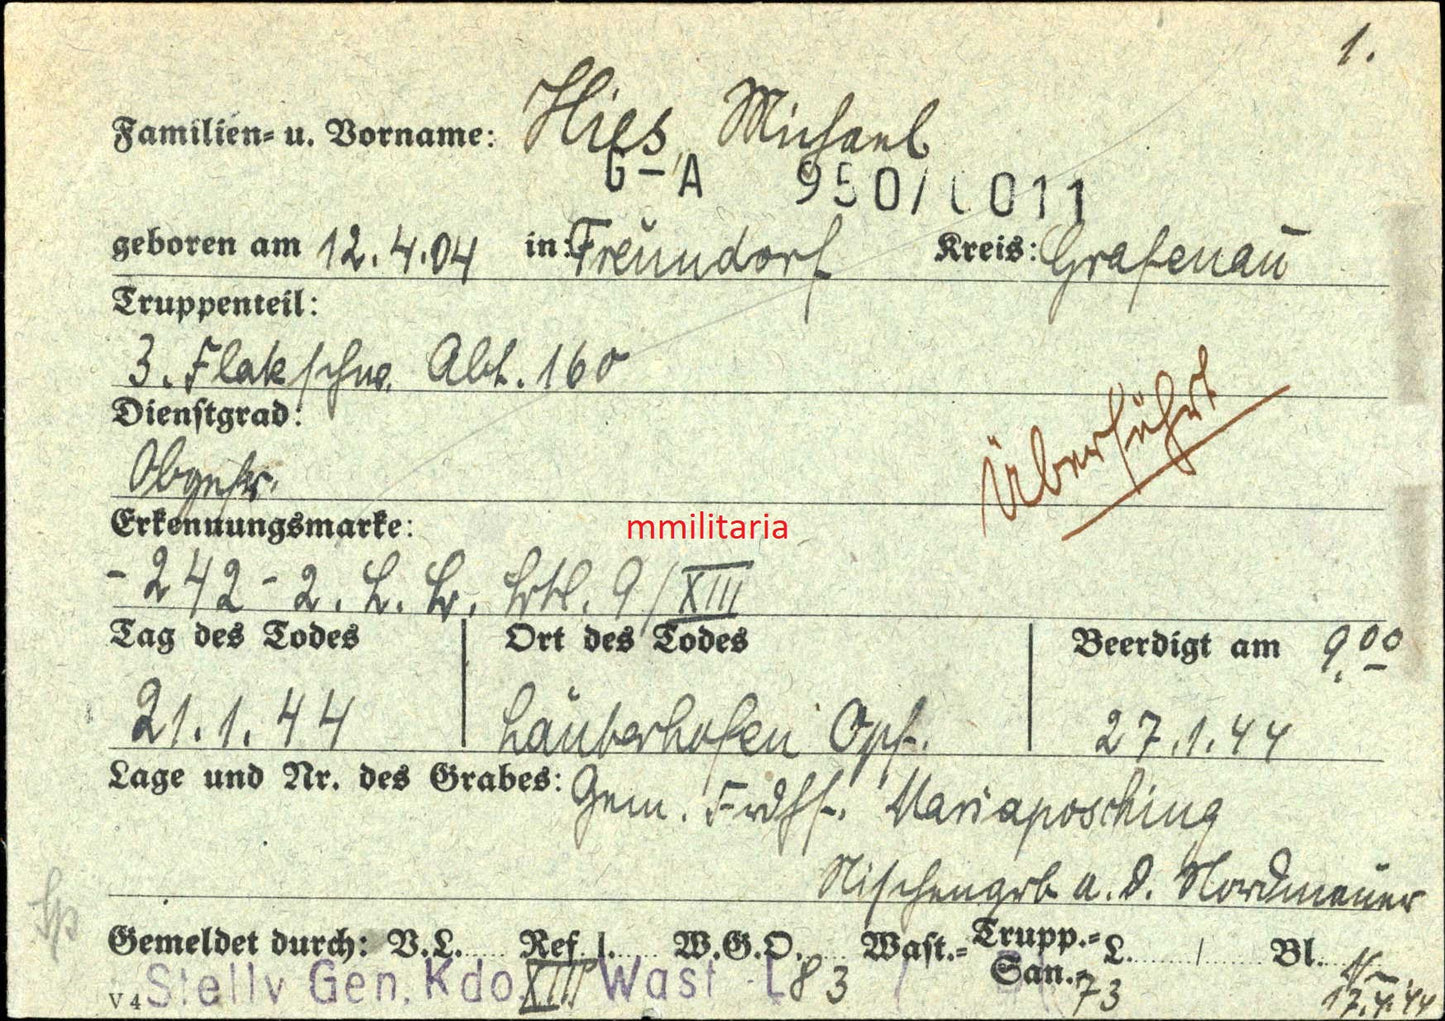 1.
Familien- u. Vorname: Hies, Michael
G-A 950/ 011
geboren am 12.4.04 in: Freundorf Kreis: Grafenau
Truppenteil:
3. Flakschw. Abt. 160
Dienstgrad:
Obgefr.
Überführt
Erkennungsmarke:
mmilitaria
-242- 2. L. 9/XIII
Tag des Todes Ort des Todes Beerdigt am 9.00
21.1.44 Lauterhofen Opf. 27.1.44
Lage und Nr. des Grabes: Gem. Frdhf. Mariaposching
Nischengrb a. d. Nordmauer
Gemeldet durch: V.L. Ref. W.G.O. Wast.= Trupp.= L. / Bl.
San.= 73
V 4 Stellv Gen. Kdo XIII Wast L83
17.4.44